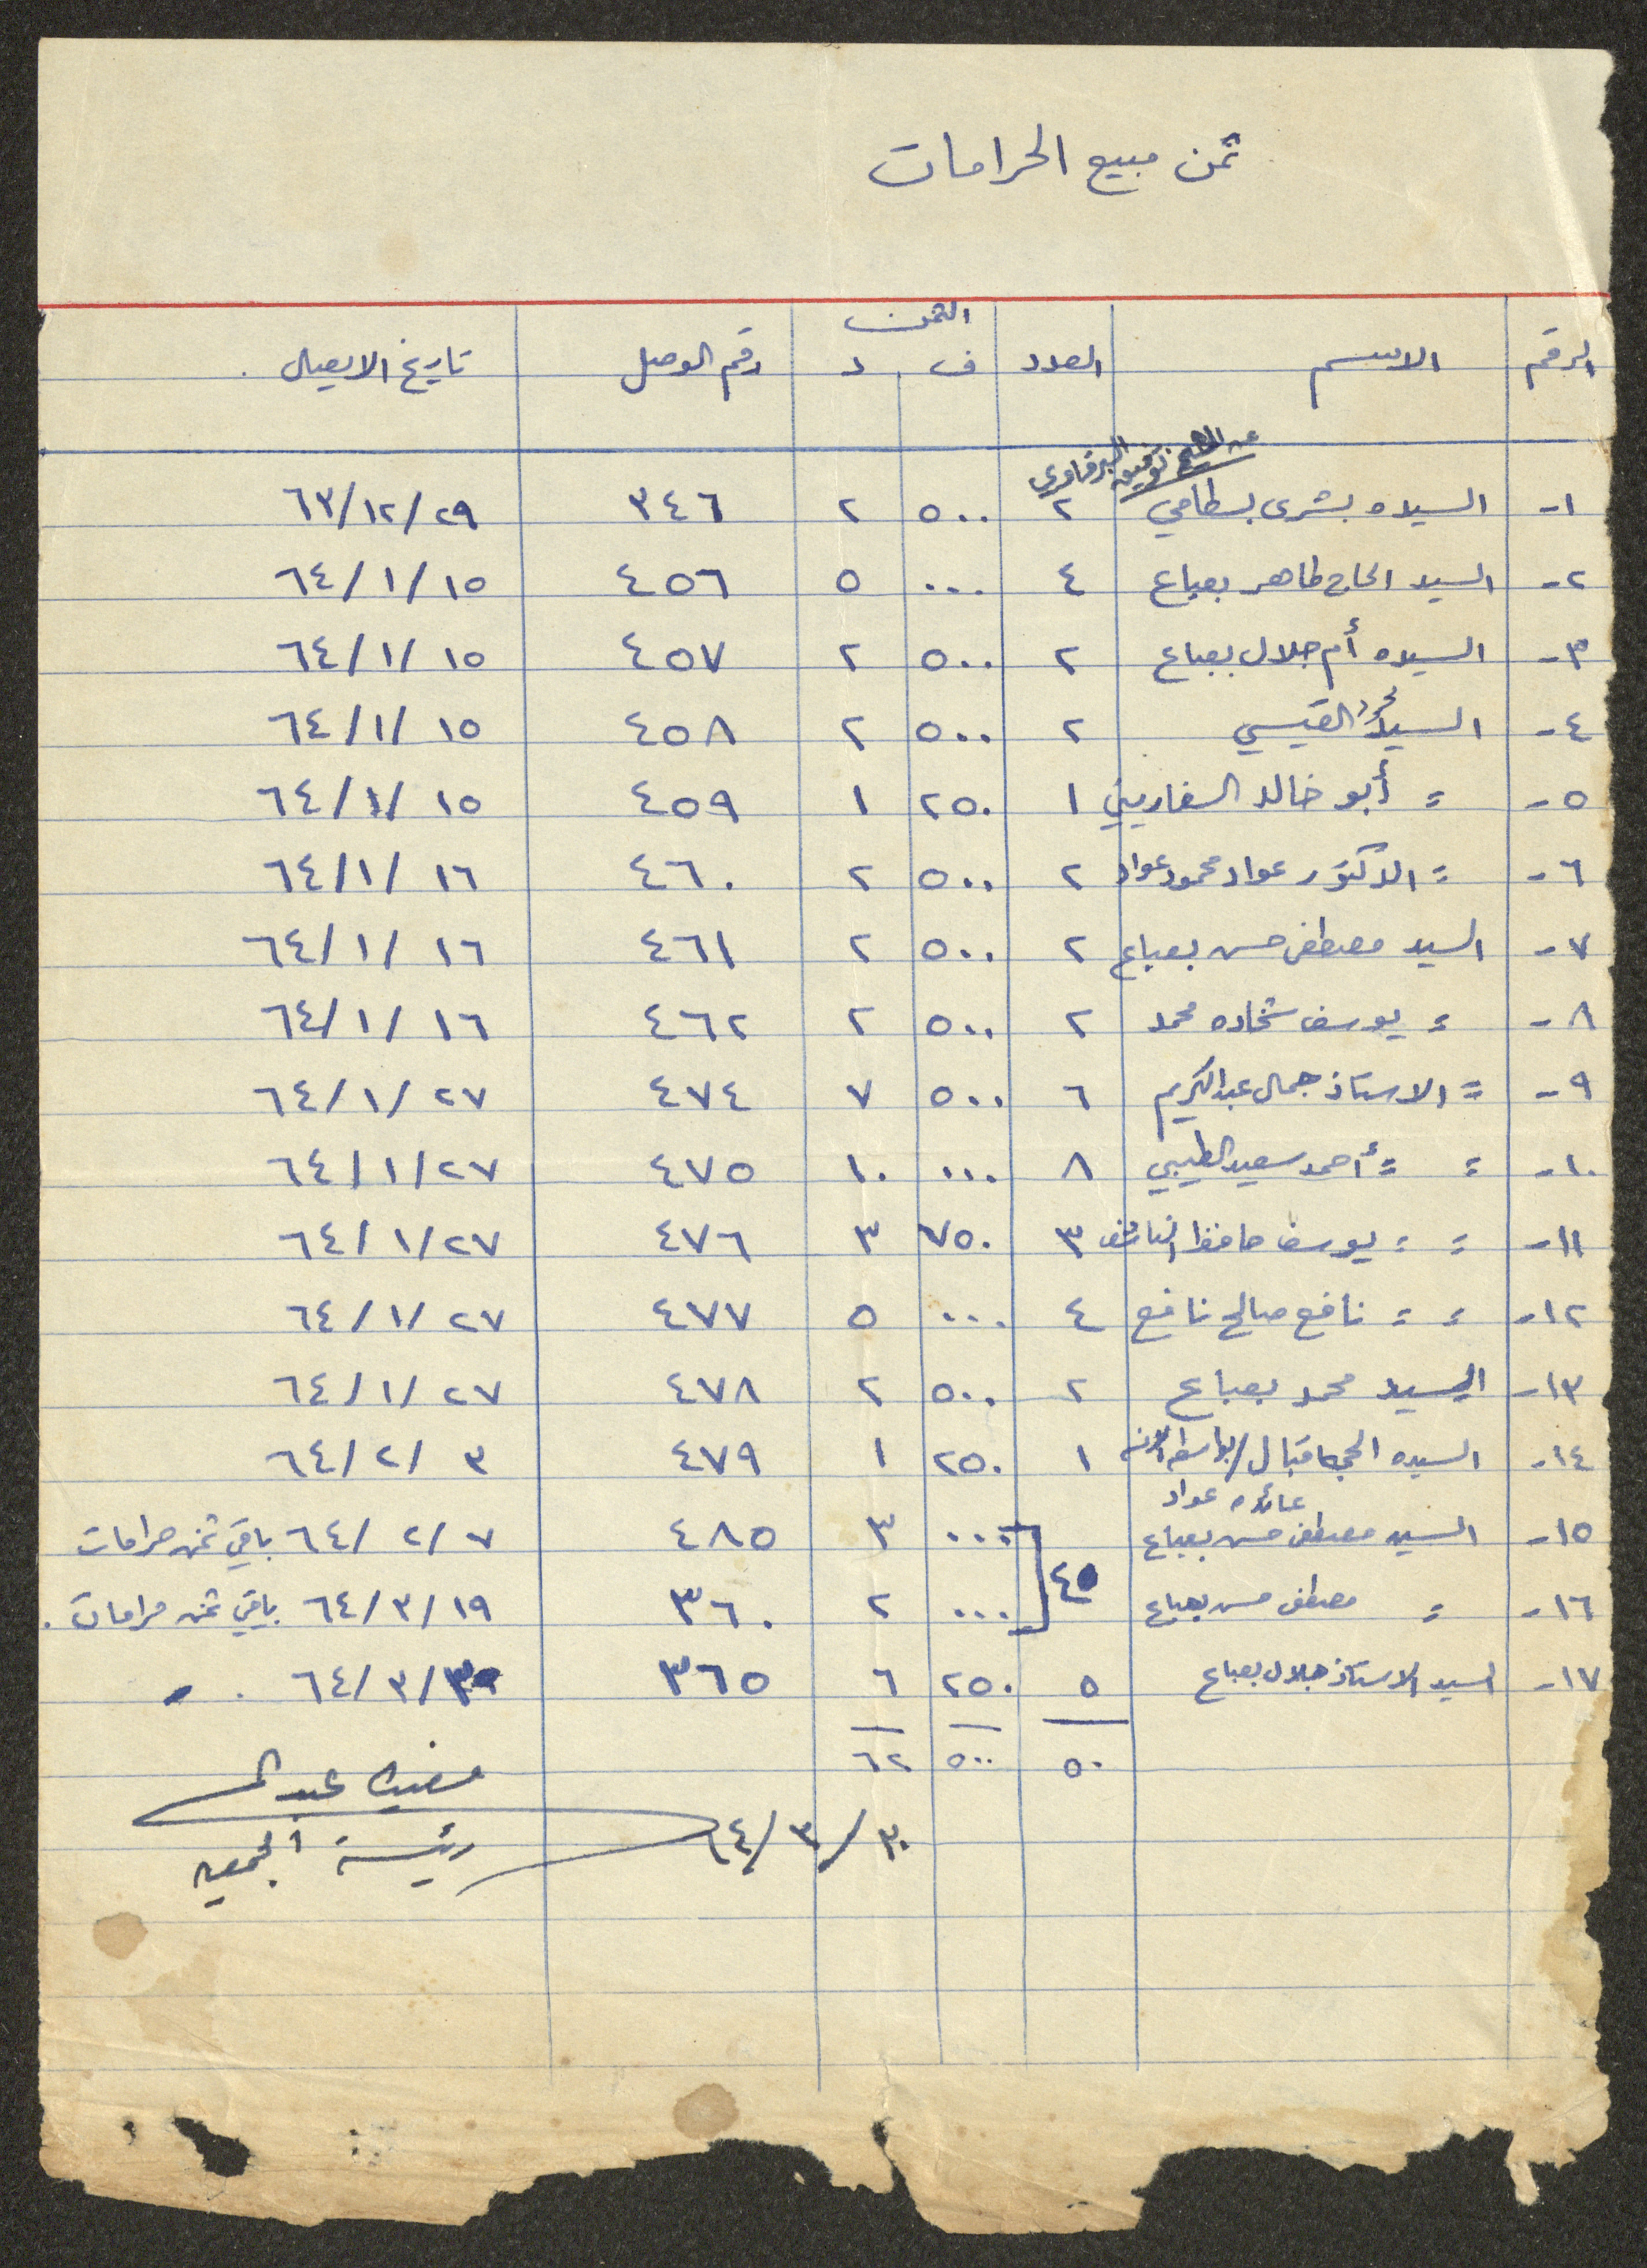 ثمن مبيع الحرامات
الرقم الاسم العدد الثمن ف د رقم الوصل تاريخ الايصال
عن الشيخ توفيق البرقاوي
١- السيده بشرى بسطامي ٢ ٥٠٠ ٢ ٣٤٦ ٦٣/١٢/٢٩
٢- السيد الحاج طاهر بعباع ٤ ٠٠٠ ٥ ٤٥٦ ٦٤/١/١٥
٣- السيده أم جلال بعباع ٢ ٥٠٠ ٢ ٤٥٧ ٦٤/١/١٥
٤- السيد محمود القيسي ٢ ٥٠٠ ٢ ٤٥٨ ٦٤/١/١٥
٥- = أبو خالد السفاريني ١ ٢٥٠ ١ ٤٥٩ ٦٤/١/١٥
٦- = الدكتور عواد محمود عواد ٢ ٥٠٠ ٢ ٤٦٠ ٦٤/١/١٦
٧- السيد مصطفى حسن بعباع ٢ ٥٠٠ ٢ ٤٦١ ٦٤/١/١٦
٨- = يوسف شحاده محمد ٢ ٥٠٠ ٢ ٤٦٢ ٦٤/١/١٦
٩- = الاستاذ جمال عبدالكريم ٦ ٥٠٠ ٧ ٤٧٤ ٦٤/١/٢٧
١٠- = = أحمد سعيد الطيبي ٨ ٠٠٠ ١٠ ٤٧٥ ٦٤/١/٢٧
١١- = = يوسف حافظ الناشف ٣ ٧٥٠ ٣ ٤٧٦ ٦٤/١/٢٧
١٢- = = نافع صالح نافع ٤ ٠٠٠ ٥ ٤٧٧ ٦٤/١/٢٧
١٣- السيد محمد بعباع ٢ ٥٠٠ ٢ ٤٧٨ ٦٤/١/٢٧
١٤- السيده الحجه اقبال/بواسطة الآنسه ١ ٢٥٠ ١ ٤٧٩ ٦٤/٢/٣
عائده عواد
١٥- السيد مصطفى حسن بعباع ٠٠٠ ٣ ٤٨٥ ٦٤/٢/٧ باقي ثمن حرامات
٤٥
١٦- = مصطفى حسن بعباع ٠٠٠ ٢ ٣٦٠ ٦٤/٣/١٩ باقي ثمن حرامات.
١٧- السيد الاستاذ جلال بعباع ٥ ٢٥٠ ٦ ٣٦٥ ٦٤/٣/٣٠
٥٠ ٥٠٠ ٦٢
٦٤/٣/٣٠
رئيسة الجمعيه